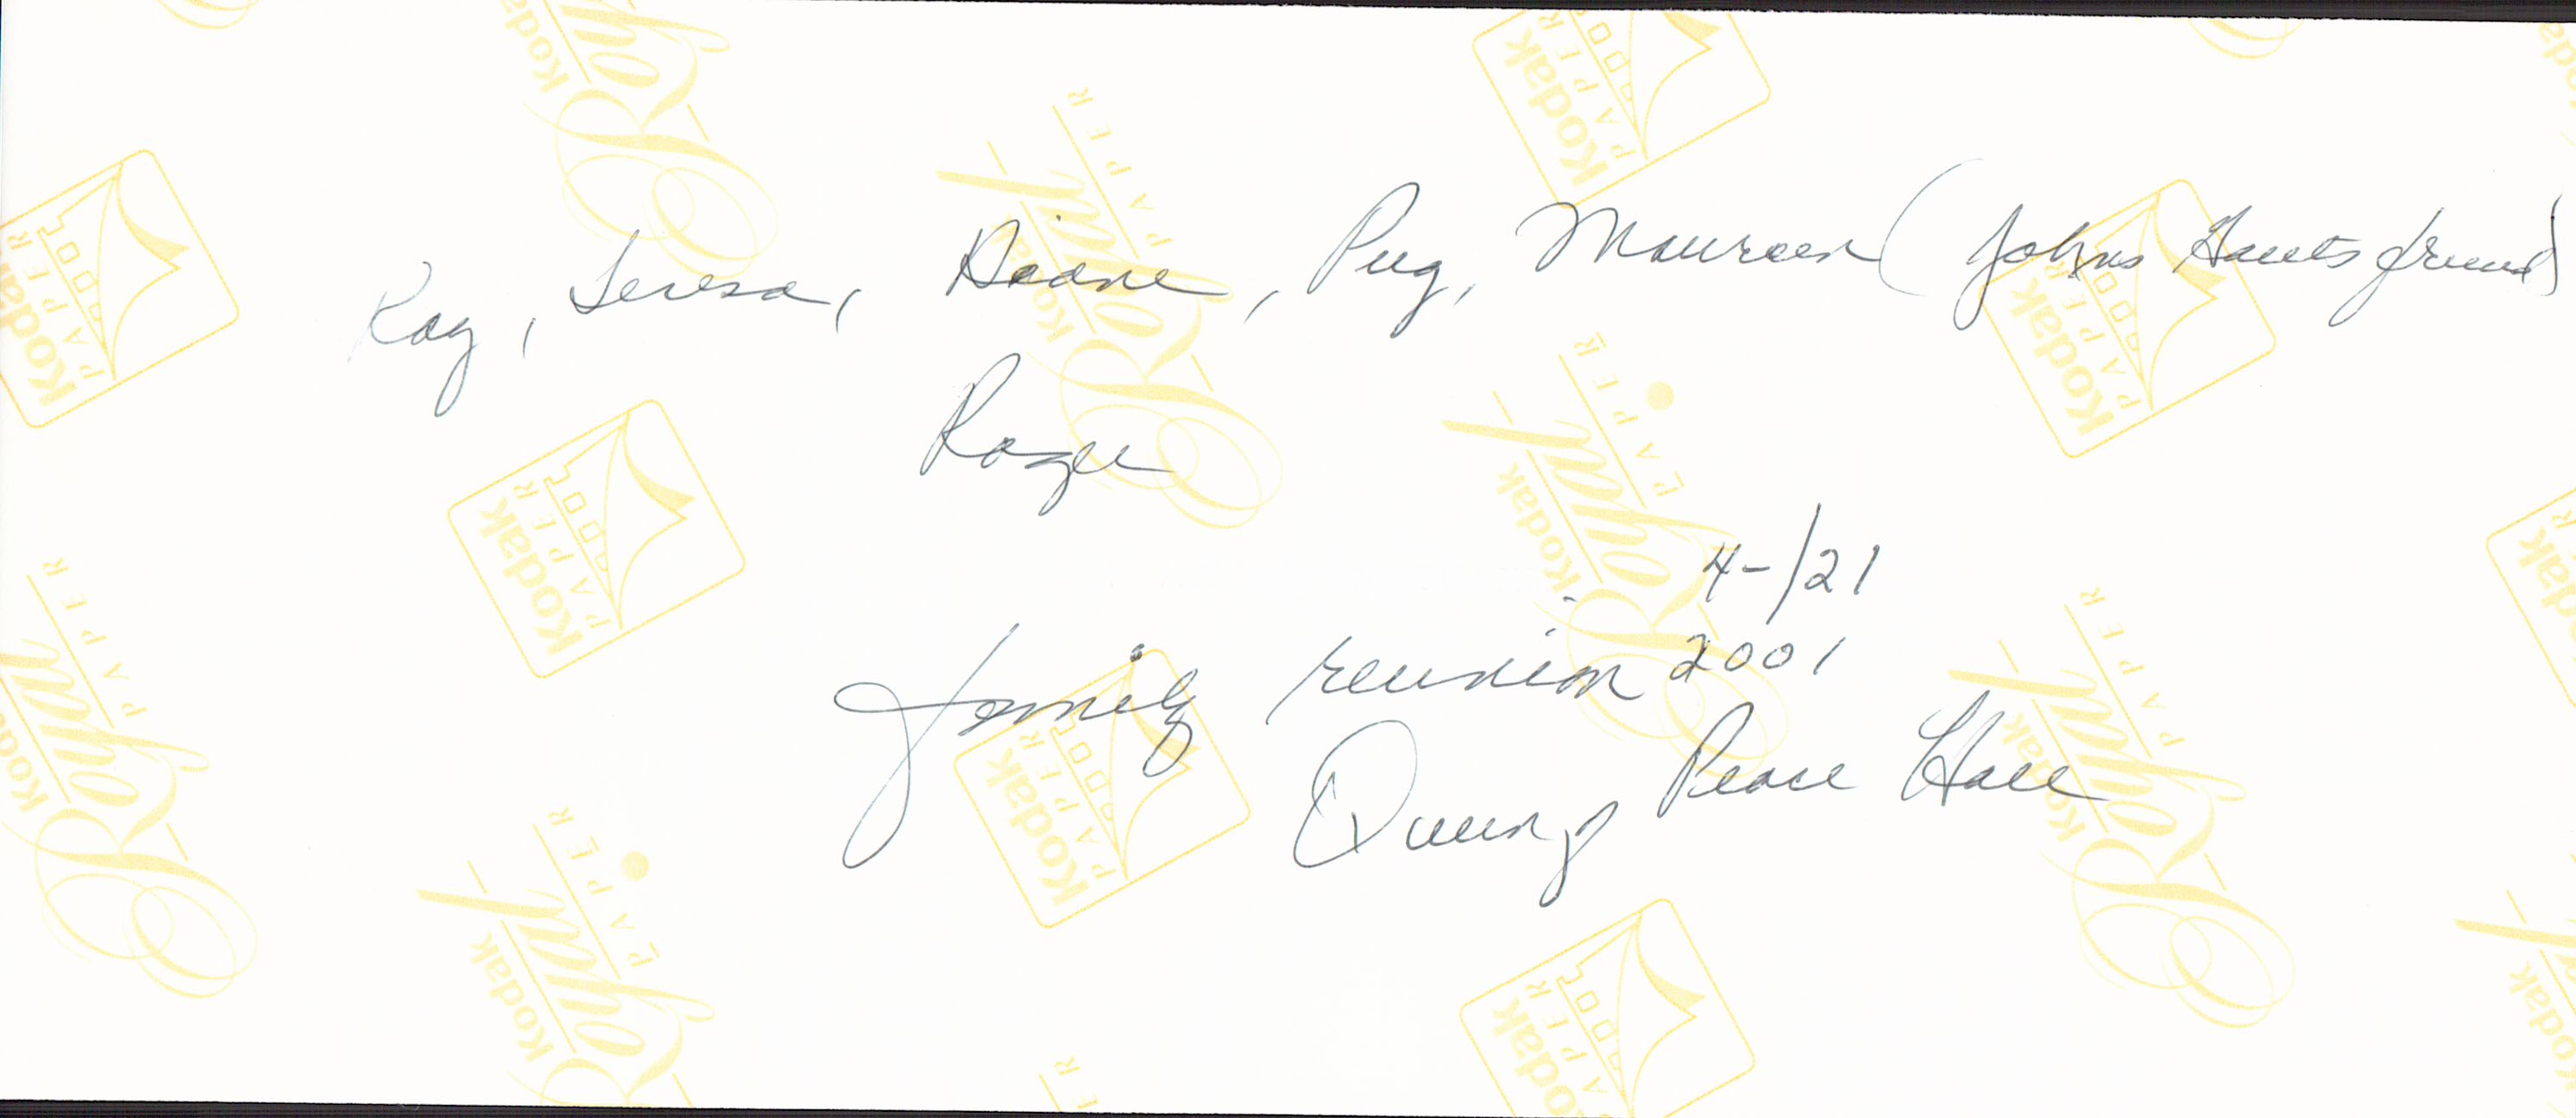 Kay, Teresa, Diane, Pug, Maureen (Johns friend)
Roger
4-/21
family reunion 2001
Queen of Peace Hall
Kodak PAPER
Kodak Royal PAPER